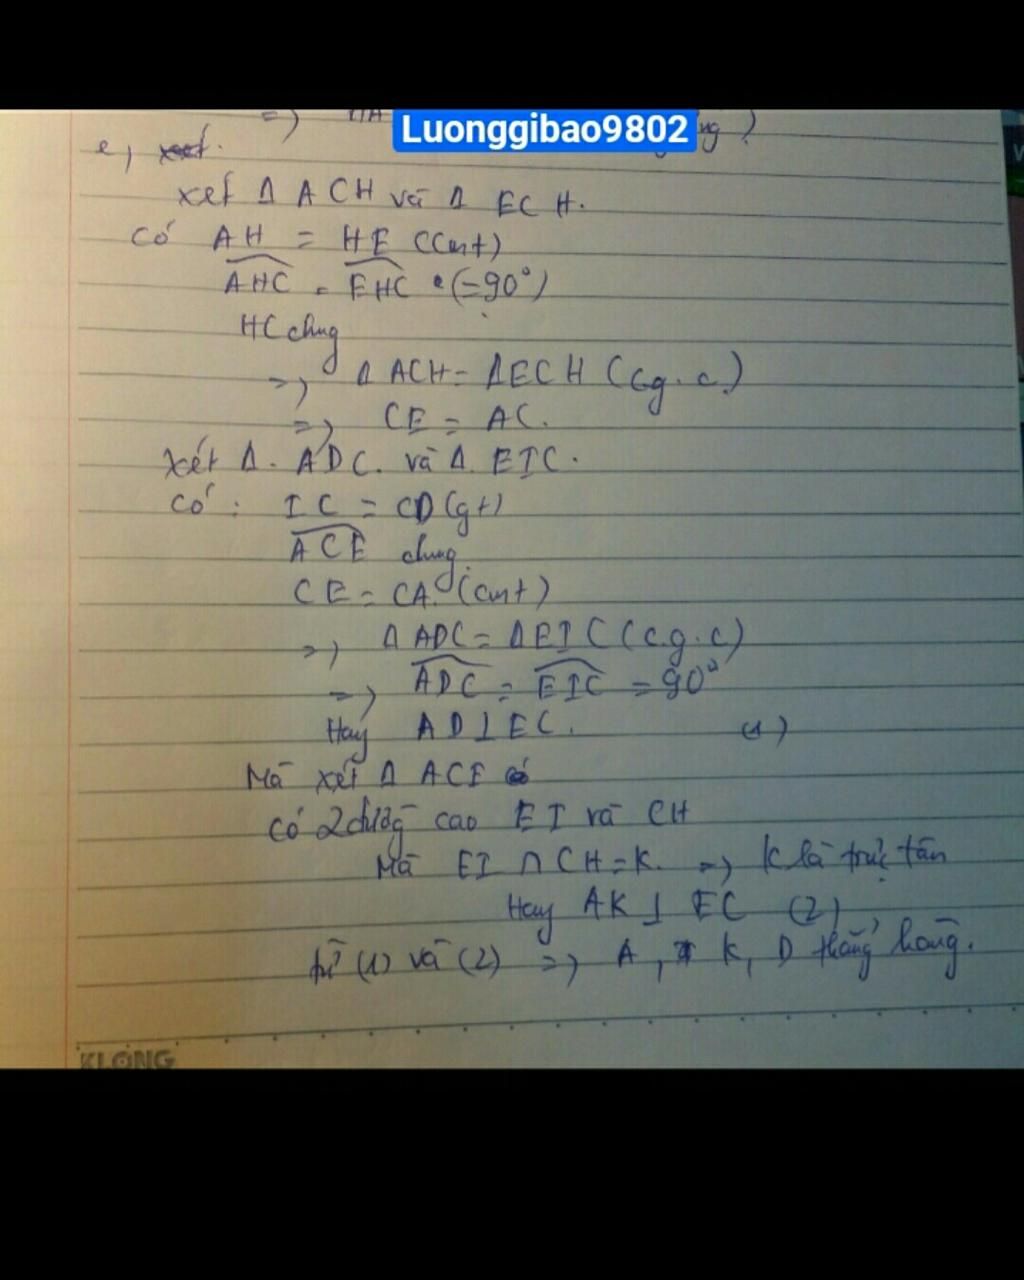 =)
Luonggibao9802
e, xét.
xét Δ ACH và Δ ECH.
Có AH = HE (cmt)
AHC = EHC (=90°)
HC chung
=) Δ ACH = ΔECH (c.g.c)
=) CE = AC.
Xét Δ. ADC. và Δ. EIC.
Có: IC = CD (gt)
ACE chung.
CE = CA (cmt)
=) Δ ADC = ΔEIC (c.g.c)
=) ADC = EIC = 90°
Hay AD ⊥ EC. (1)
Mà xét Δ ACE có
Có 2 đường cao EI và CH
Mà EI ∩ CH = K. =) K là trực tâm
Hay AK ⊥ EC (2)
từ (1) và (2) =) A, K, D thẳng hàng.
KLONG